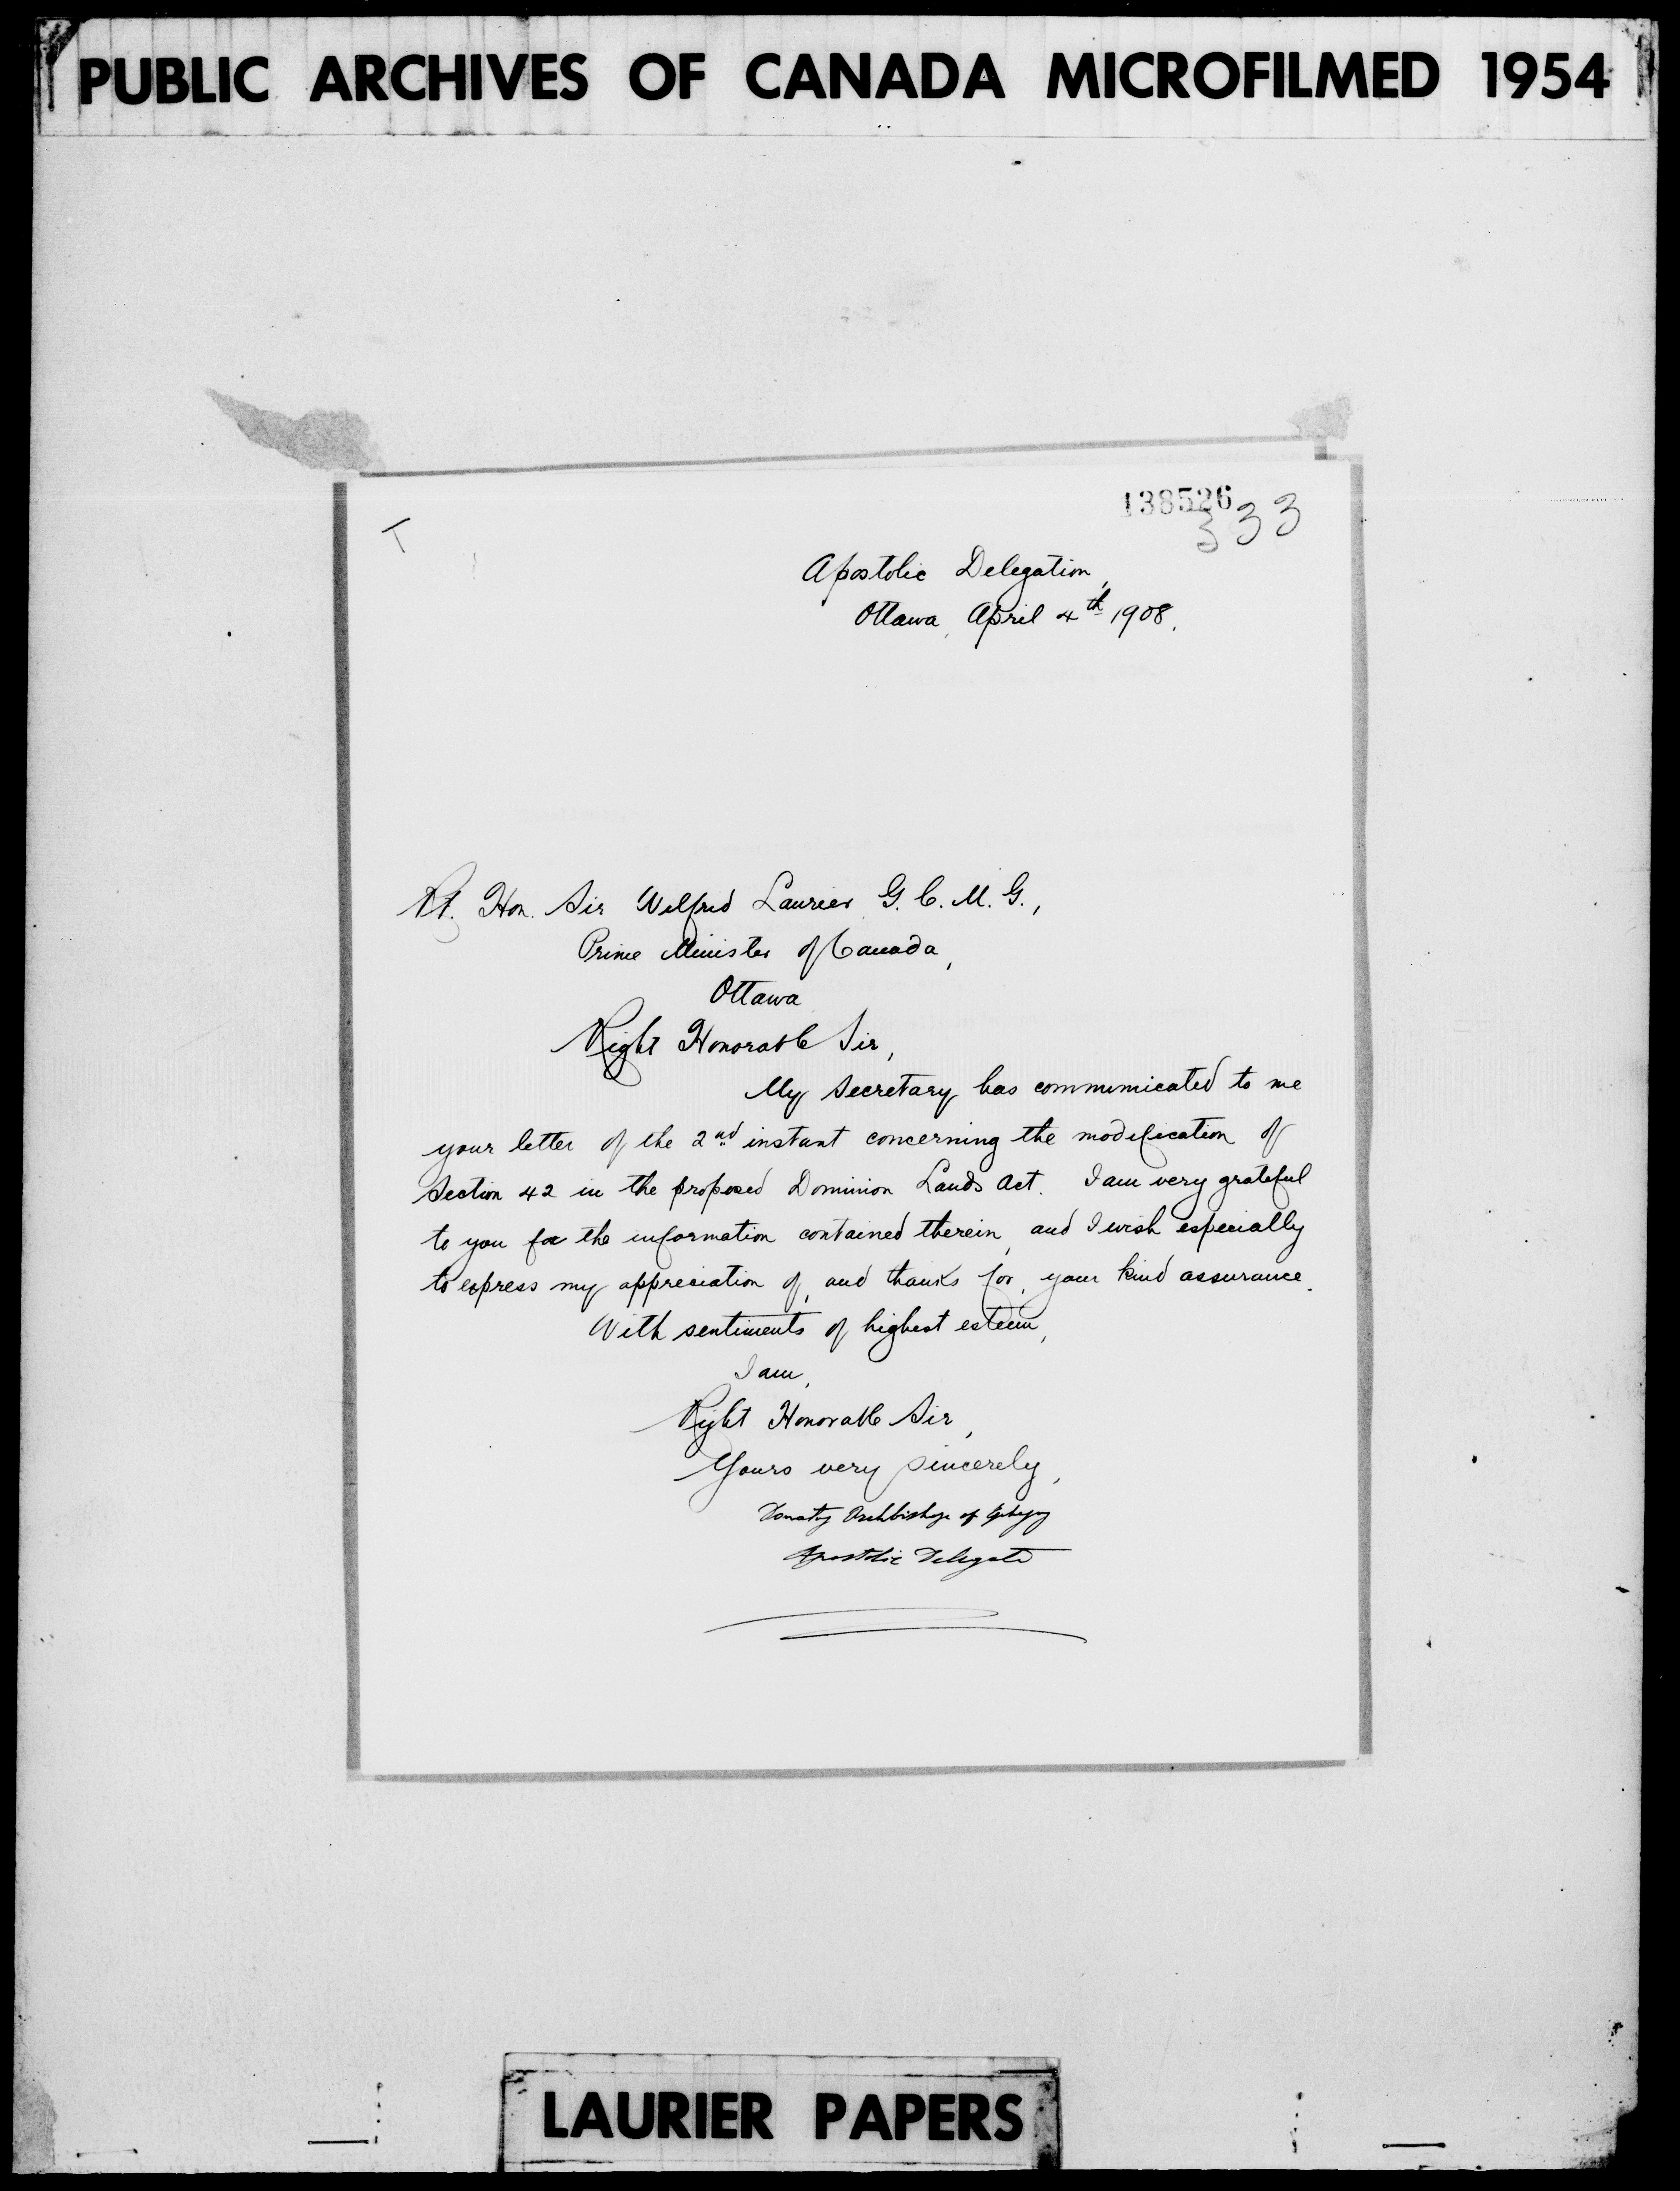 PUBLIC ARCHIVES OF CANADA MICROFILMED 1954
138526
333
T
Apostolic Delegation,
Ottawa, April 4th 1908.
Rt. Hon. Sir Wilfrid Laurier G. C. M. G.,
Prime Minister of Canada,
Ottawa
Right Honorable Sir,
My Secretary has communicated to me
your letter of the 2nd instant concerning the modification of
Section 42 in the proposed Dominion Lands Act. I am very grateful
to you for the information contained therein, and I wish especially
to express my appreciation of, and thanks for, your kind assurance.
With sentiments of highest esteem,
I am,
Right Honorable Sir,
Yours very sincerely,
Donatus Archbishop of Ephesus
Apostolic Delegate
LAURIER PAPERS